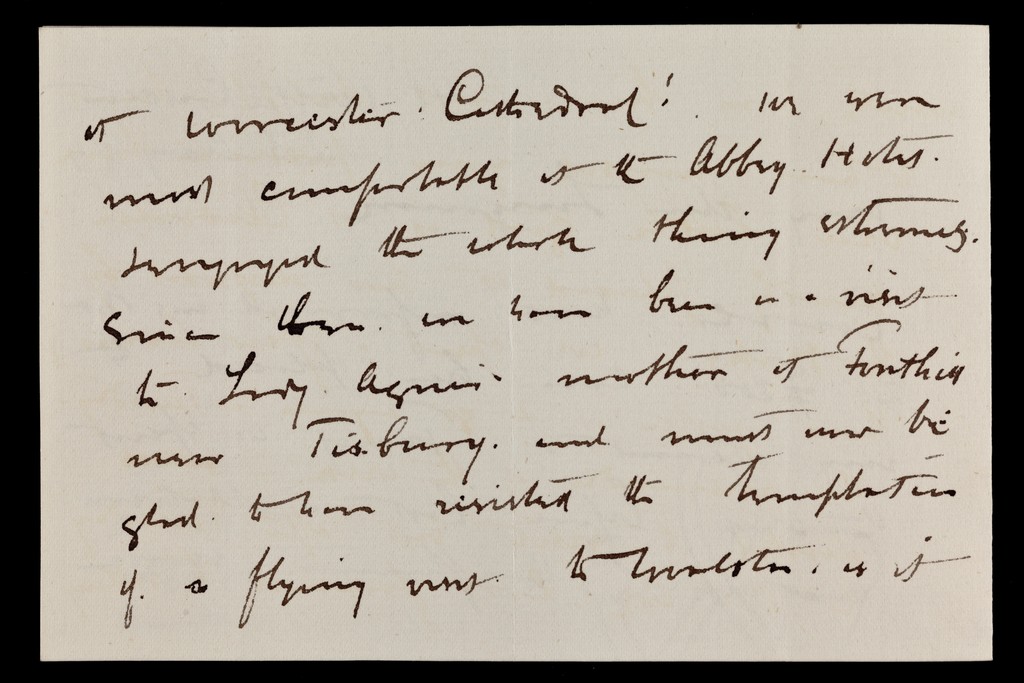 at Worcester Cathedral! We were
most comfortable at the Abbey Hotel.
& enjoyed the whole thing extremely.
Since then we have been on a visit
to Lady Agnes mother at Fonthill
near Tisbury. and must now be
glad to have resisted the temptation
of a flying visit to as it